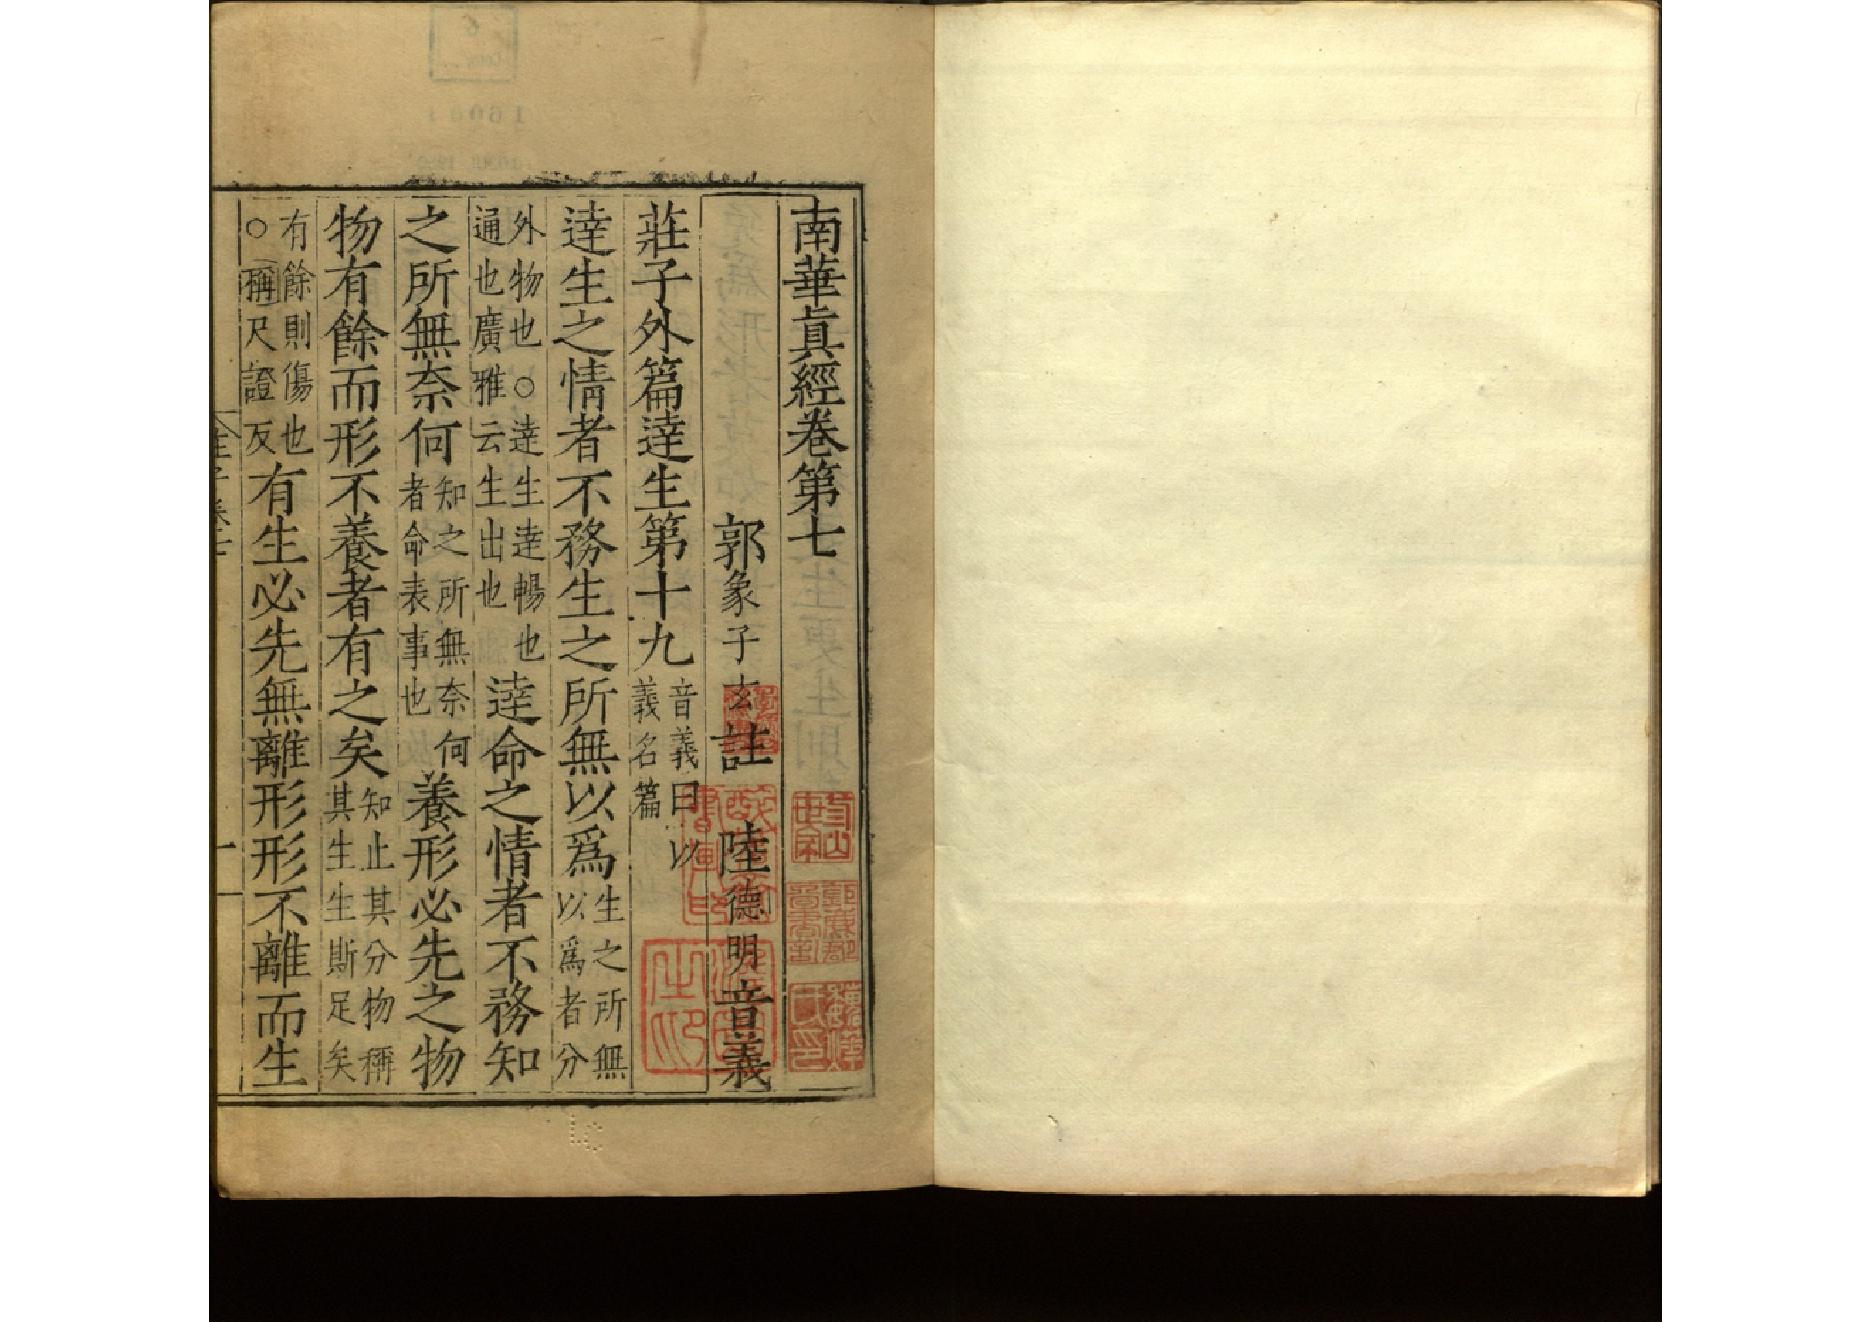 南華眞經卷第七
郭象子玄註 陸德明音義
莊子外篇達生第十九 音義曰以義名篇
達生之情者不務生之所無以爲 生之所無以爲者分
外物也○達生達暢也通也廣雅云生出也 達命之情者不務知
之所無奈何 知之所無奈何者命表事也 養形必先之物
物有餘而形不養者有之矣 知止其分物稱其生生斯足矣
有餘則傷也○稱尺證反 有生必先無離形形不離而生